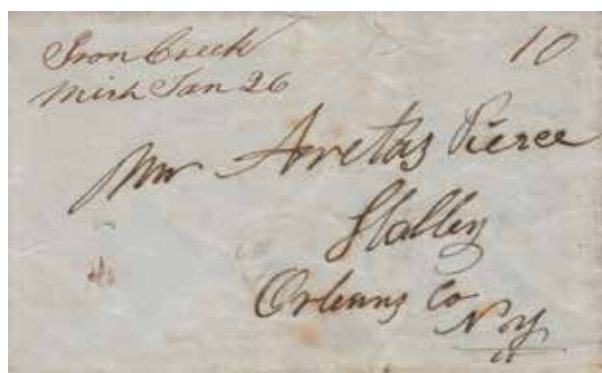 Iron Creek
Mich Jan 26
10
Mr Aretas Pierce
Holley
Orleans Co
N Y